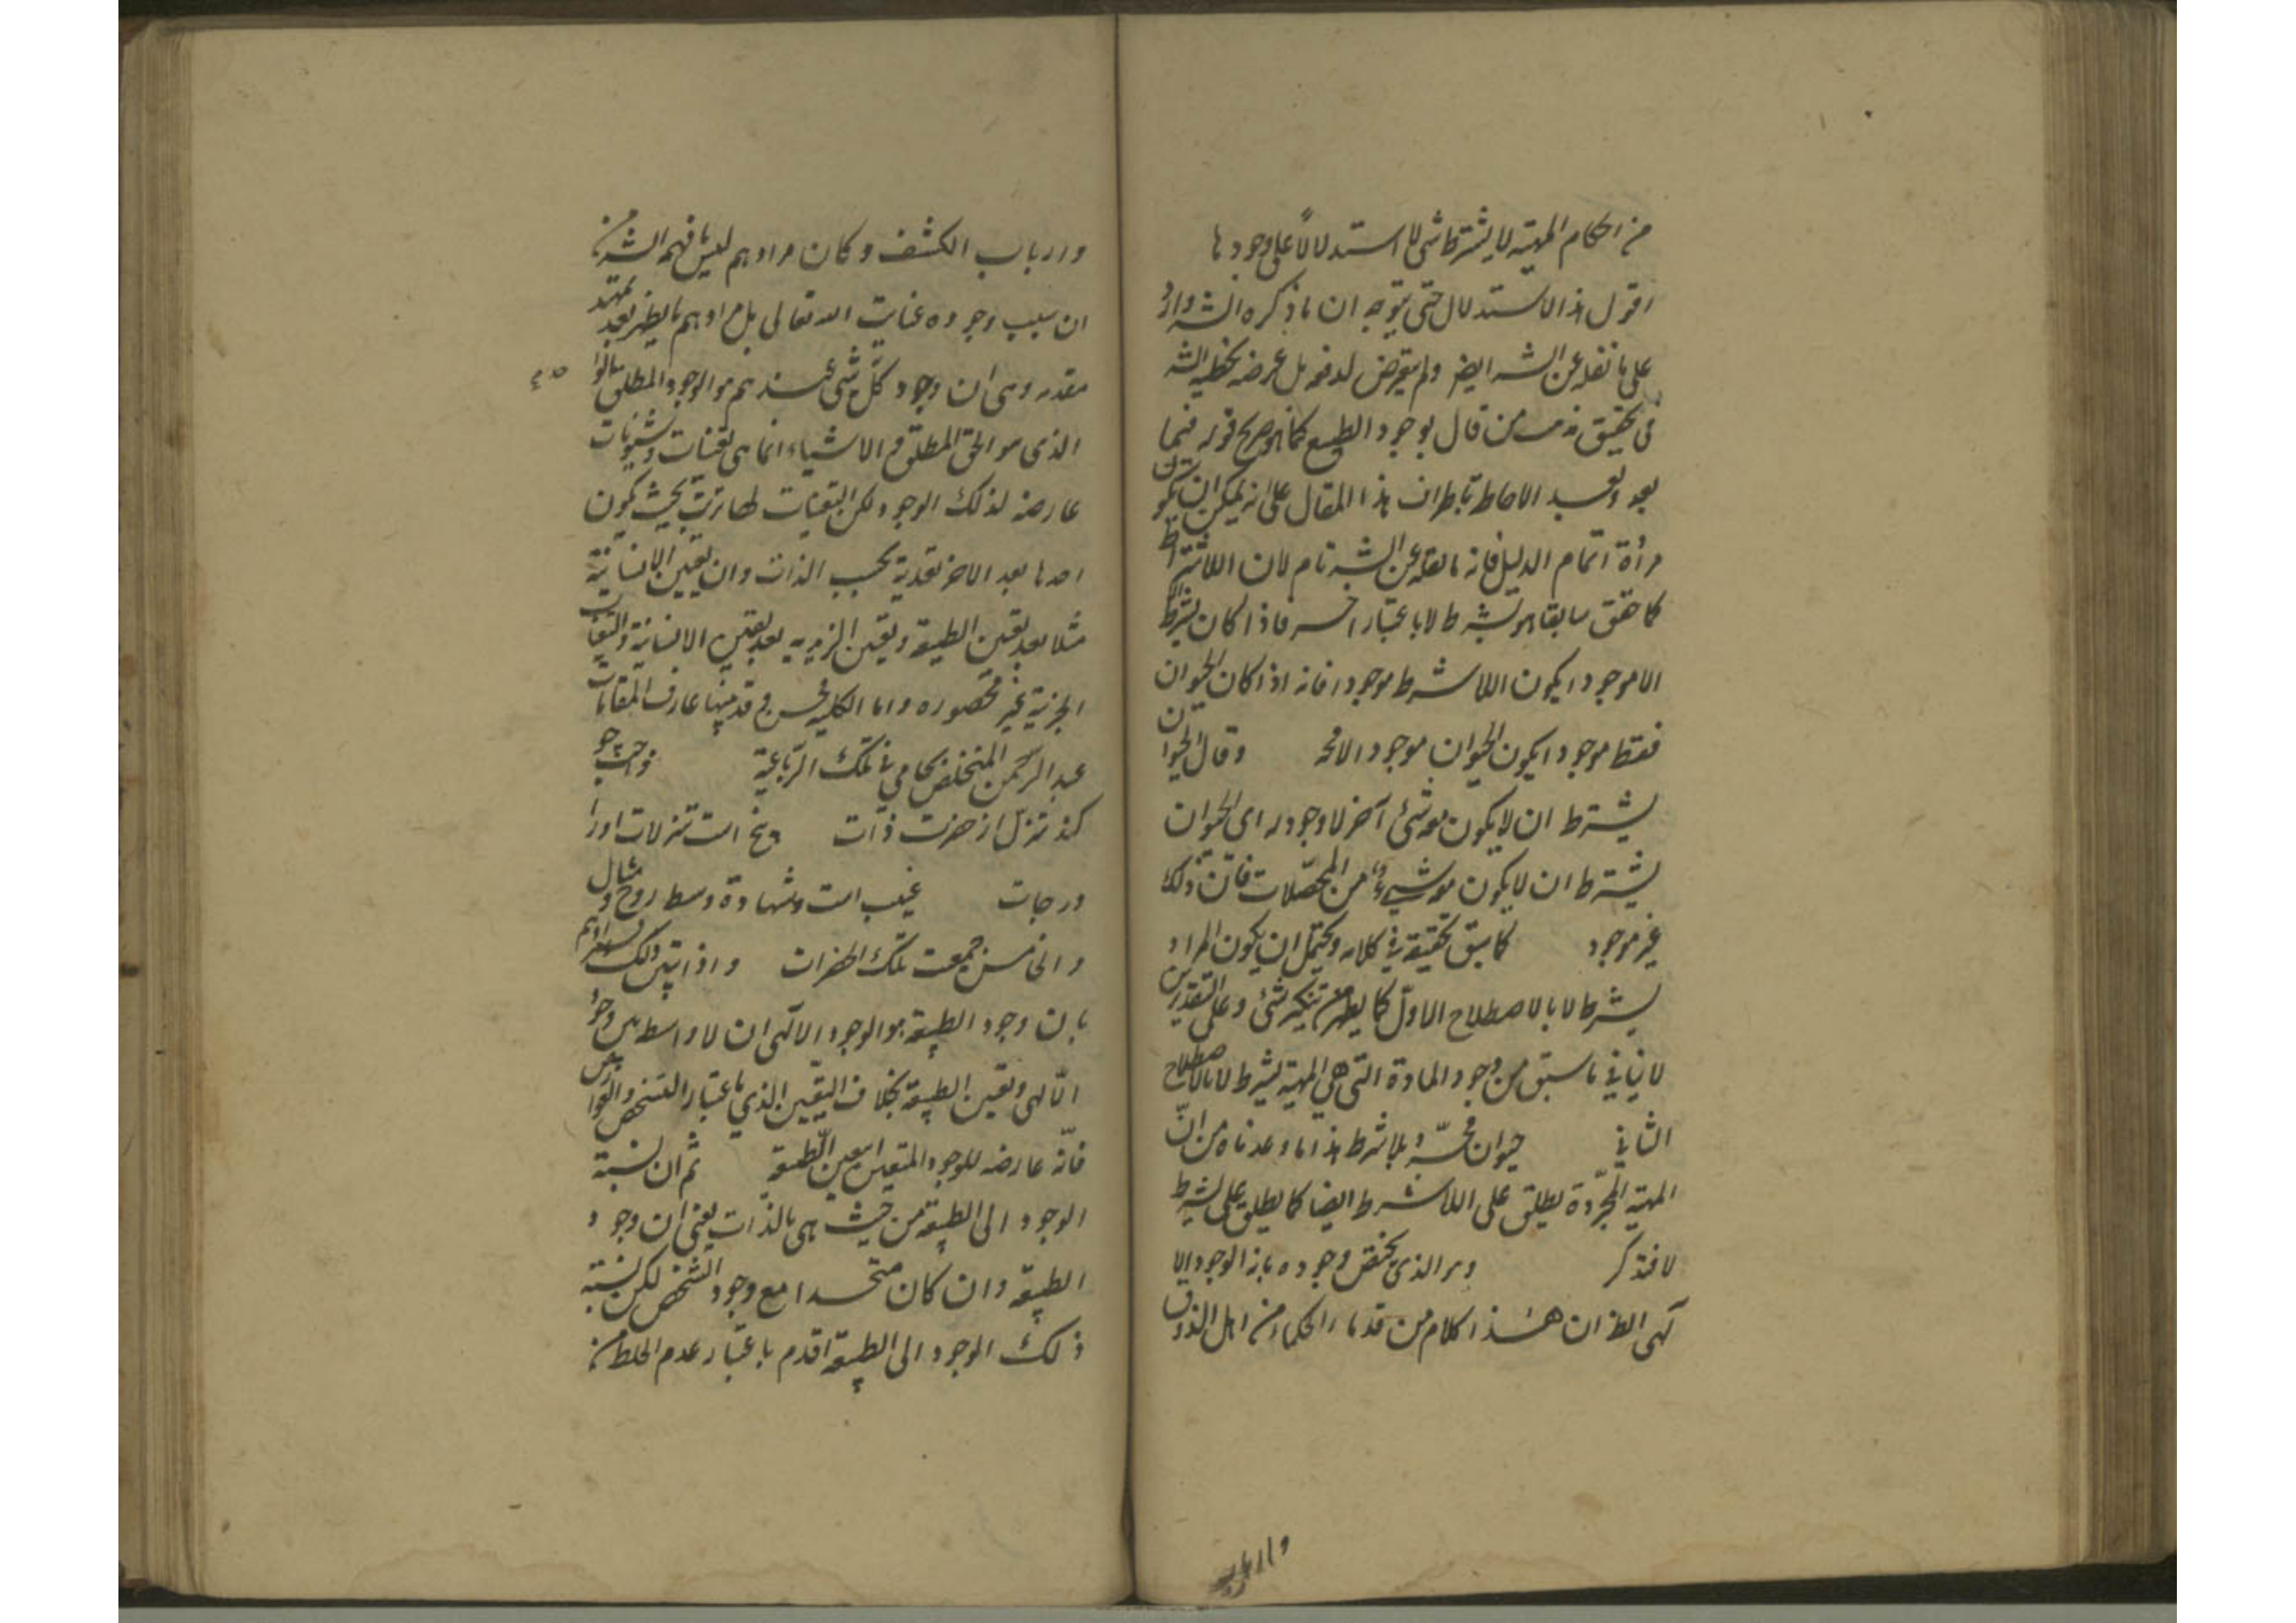 من احكام المهية لا بشرط شئ لا استدلالاً على وجودها
اقول هذا الاستدلال حتى يتوجه ان ما ذكره الشه وارد
على ما نقله عن الشه ايضا ولم يتعرض لدفعه بل غرضه تخطية الشه
فى تحقيق مذهب من قال بوجود الطبيع كما هو صريح قوله فيما
بعد وبعد الاحاطة باطراف هذا المقال على انه يمكن ان يكون
مرأة اتمام الدليل فانه ما نقله عن الشه تام لان اللا شرط
كما حقق سابقا هو بشرط لا باعتبار اخر فاذا كان بشرط
لا موجودا يكون اللا شرط موجودا فانه اذا كان الحيوان
فقط موجودا يكون الحيوان موجودا لا محه وقال الحيوان
بشرط ان لا يكون معه شئ آخر لا وجود له اى الحيوان
بشرط ان لا يكون معه شئ من المحصّلات فان ذلك
غير موجود كما سبق تحقيقه في كلامه ويحتمل ان يكون المراد
بشرط لا بالاصطلاح الاوّل كما يظهر من تنكير شئ وعلى التقديرين
لا ينافي ما سبق من وجود المادة التى هى المهية بشرط لا بالاصطلاح
الثاني حيوان مجرّد بلا شرط هذا ما وعدناه من انّ
المهية المجرّدة يطلق على اللا شرط ايضا كما يطلق على بشرط
لا فتذكر وهو الذى يختص وجوده بانه الوجود الا
لهى الظ ان هذا كلام من قدماء الحكماء من اهل الذوق
وارباب الكشف وكان مرادهم ليس ما فهمه الشه من
ان سبب وجوده عناية الله تعالى بل مرادهم ما يظهر بعد تمهيد
مقدمه وهى ان وجود كلّ شئ عندهم هو الوجود المطلق
الذى هو الحق المطلق والاشياء انما هى تعينات وشئونات
عارضه لذلك الوجود ولكن التعينات لها ترتّب بحيث يكون
احدها بعد الاخر بعدية بحسب الذات وان تعيين الانسانية
مثلا بعد تعين الطبيعة وتعين الزيديه بعد تعين الانسانية والتعينات
الجزئية غير محصوره واما الكلية فخمس وقد بينها عارف المقامات
عبد الرحمن المتخلص بجامي في تلك الرّباعية واجب چو
كند تنزل از حضرت ذات پنج است تنزلات او را
درجات غيب است وشهادة وسط روح ومثال
والخامس جمعيت تلك الحضرات واذا تبين ذلك ظهر مرادهم
بان وجود الطبيعة هو الوجود الالهى ان لا واسطه بين وجود
الالهى وتعين الطبيعة بخلاف التعيّن الذي باعتبار التشخص والعوارض
فانّه عارضه للوجود المتعين بتعين الطبيعة ثم ان نسبة
الوجود الى الطبيعة من حيث هى بالذات يعنى ان وجود
الطبيعة وان كان متحدا مع وجود الشخص لكن نسبة
ذلك الوجود الى الطبيعة اقدم باعتبار عدم الخلط من